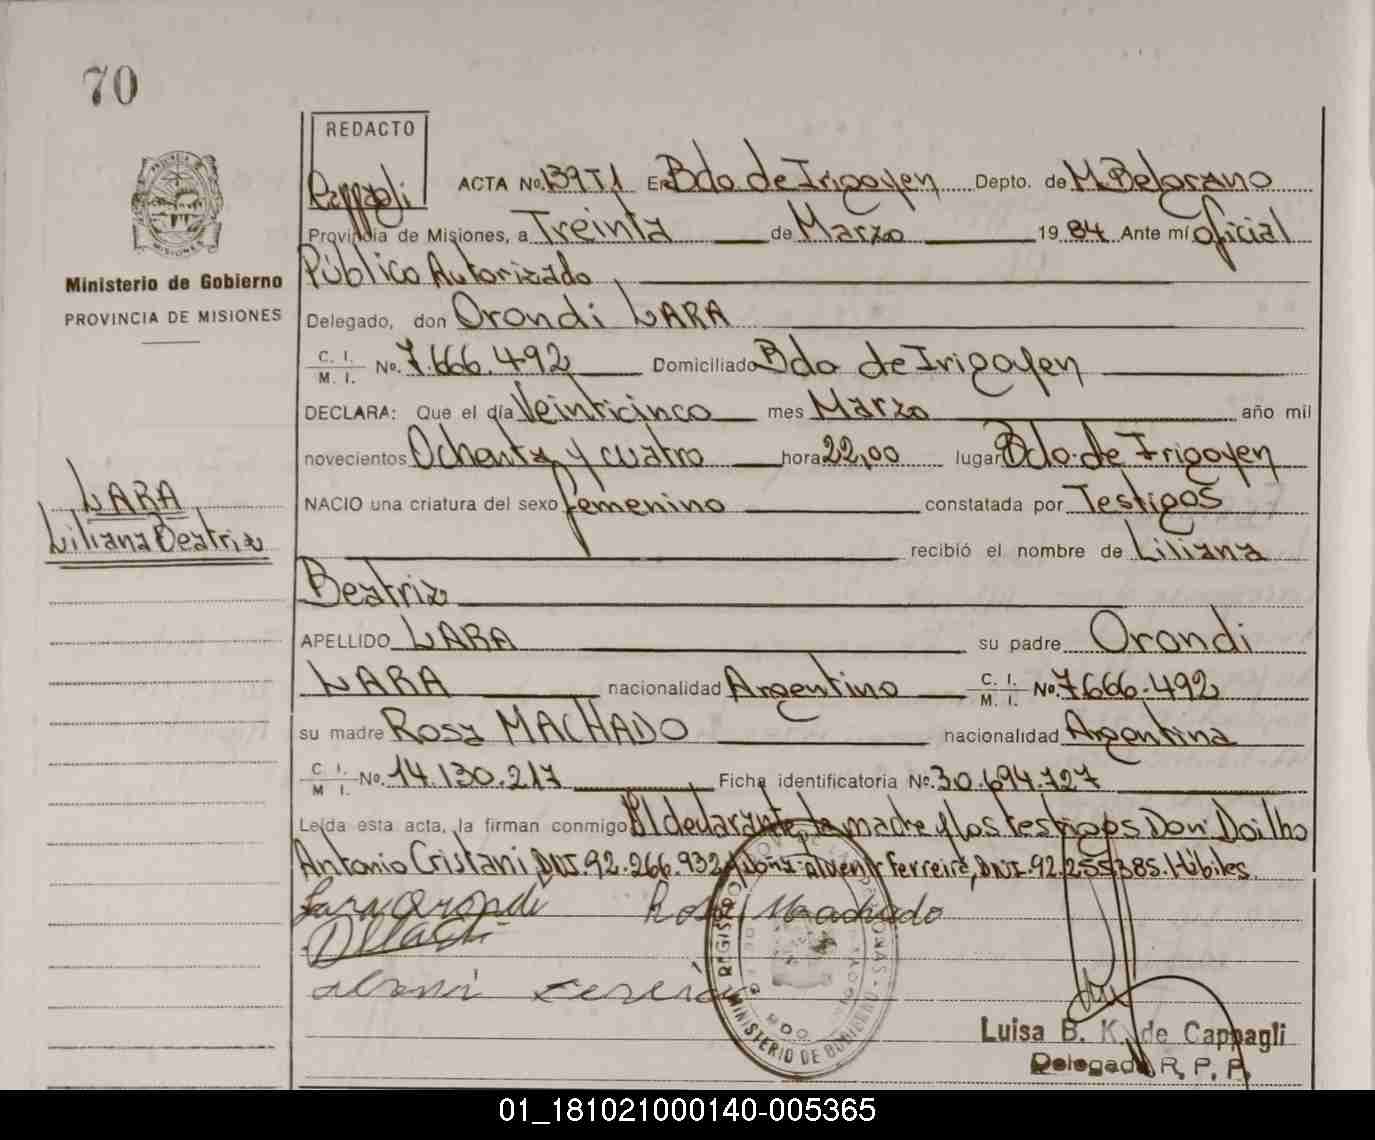 70
REDACTO
Cappagli
ACTA No. 139 T1 En Bdo. de Irigoyen Depto. de M. Belgrano
Provincia de Misiones, a Treinta de Marzo 1984 Ante mí oficial
Público Autorizado
Delegado, don Orondi LARA
C. I. M. I. No. 7.666.492 Domiciliado Bdo de Irigoyen
DECLARA: Que el día Veinticinco mes Marzo año mil
novecientos Ochenta y cuatro hora 22,00 lugar Bdo. de Irigoyen
NACIO una criatura del sexo femenino constatada por Testigos
recibió el nombre de Liliana
Beatriz
APELLIDO LARA su padre Orondi
LARA nacionalidad Argentino C. I. M. I. No. 7.666.492
su madre Rosa MACHADO nacionalidad Argentina
C. I. M. I. No. 14.130.217 Ficha identificatoria No. 30.694.727
Leída esta acta, la firman conmigo El declarante, la madre y los testigos Don Doilho
Antonio Cristani, DNI. 92.266.932 y Ferreira, DNI. 92.255385. Hábiles
Lara Orondi Rosa Machado
Ministerio de Gobierno
PROVINCIA DE MISIONES
LARA
Liliana Beatriz
MINISTERIO DE GOBIERNO
Luisa B. K. de Cappagli
Delegada R. P. P.
01_181021000140-005365